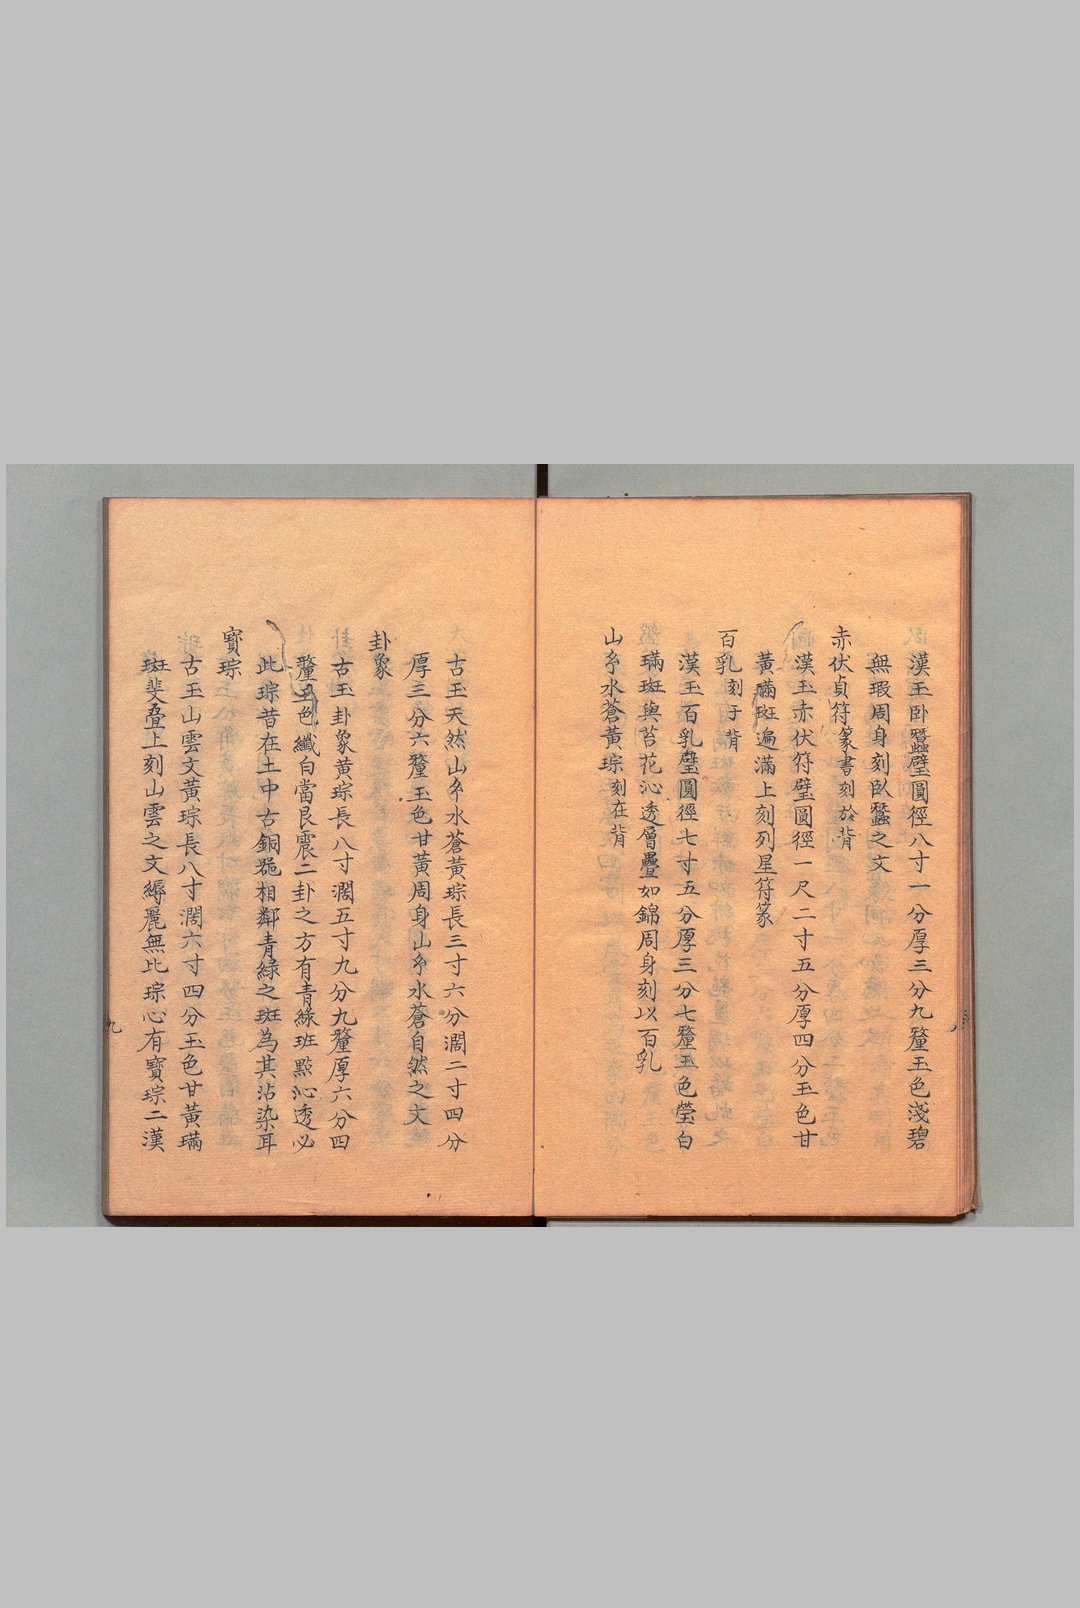 漢玉卧蠶璧圓徑八寸一分厚三分九釐玉色淺碧
無瑕周身刻臥蠶之文
赤伏貞符篆書刻於背
漢玉赤伏符璧圓徑一尺二寸五分厚四分玉色甘
黃㻞斑遍滿上刻列星符篆
百乳刻于背
漢玉百乳璧圓徑七寸五分厚三分七釐玉色瑩白
璊斑與苔花沁透層疊如錦周身刻以百乳
山玄水蒼黃琮刻在背
古玉天然山玄水蒼黃琮長三寸六分濶二寸四分
厚三分六釐玉色甘黃周身山玄水蒼自然之文
卦象
古玉卦象黃琮長八寸濶五寸九分九釐厚六分四
釐玉色纖白當艮震二卦之方有青綠班點沁透必
此琮昔在土中古銅器相鄰青綠之斑為其沾染耳
寶琮
古玉山雲文黃琮長八寸濶六寸四分玉色甘黃璊
斑斐疊上刻山雲之文縟麗無比琮心有寶琮二漢
九